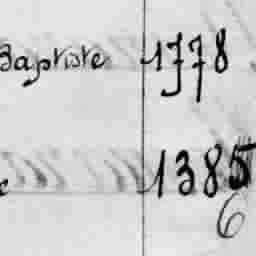 Baptiste 1778
e 1385
6